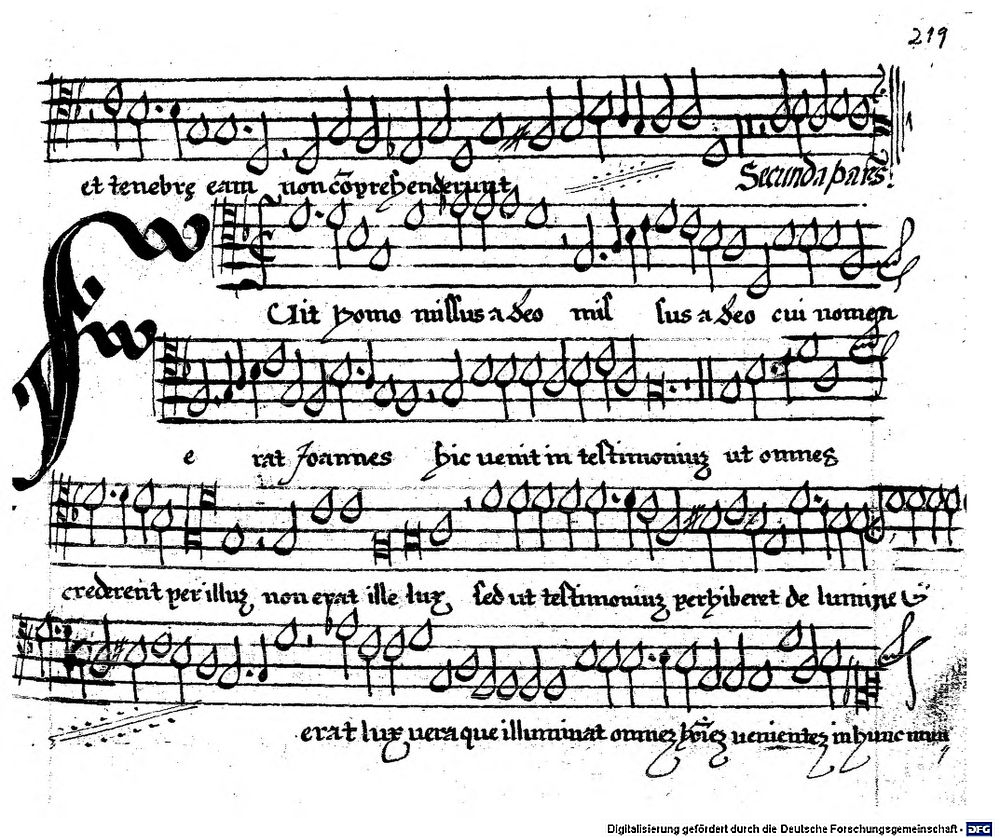 219
et tenebrę eam non cō̄prehenderunt
Secunda pars
Fuit homo missus a deo mis sus a deo cui nomen
e rat Joannes hic uenit in testimoniuʒ ut omnes
crederent per illuʒ non erat ille lux sed ut testimoniuʒ perhiberet de lumine
erat lux uera que illuminat omneʒ uenienteʒ in hunc mun
Digitalisierung gefördert durch die Deutsche Forschungsgemeinschaft - DFG